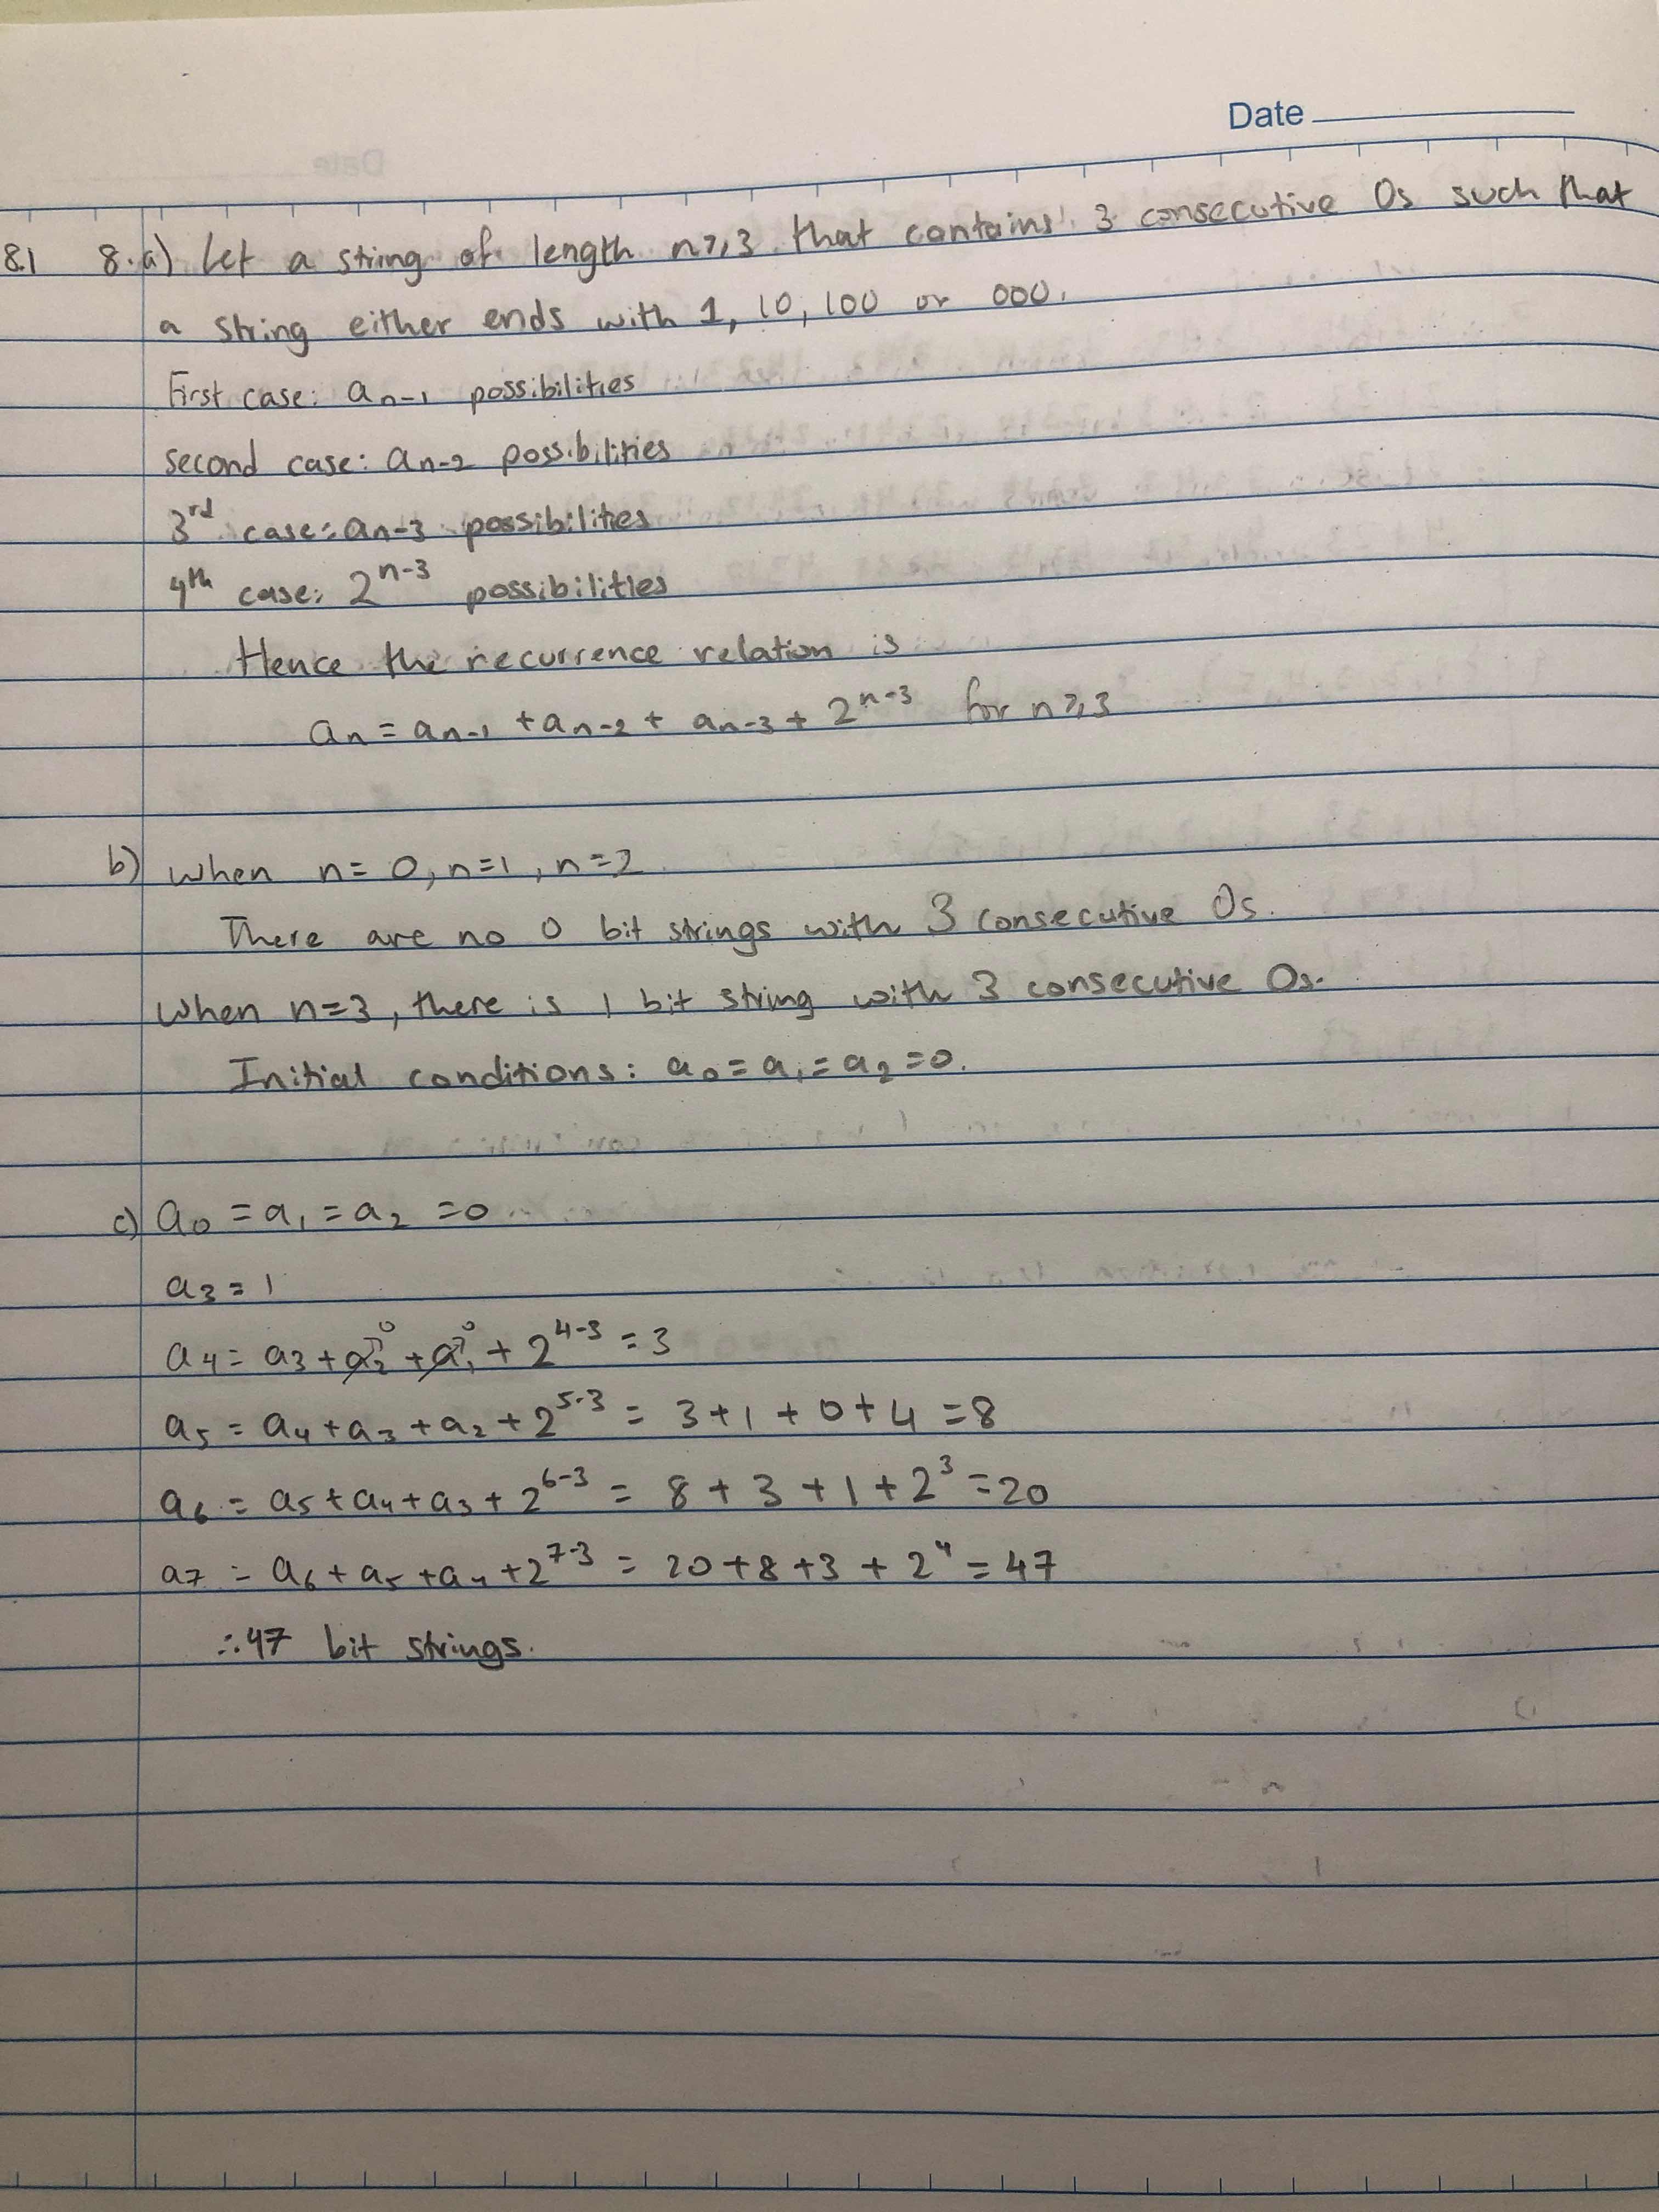 Date
8.1 8.a) Let a string of length n≥3 that contains 3 consecutive 0s such that
a string either ends with 1, 10, 100 or 000.
First case: aₙ₋₁ possibilities
second case: aₙ₋₂ possibilities
3ʳᵈ case: aₙ₋₃ possibilities
4ᵗʰ case: 2ⁿ⁻³ possibilities
Hence the recurrence relation is
aₙ = aₙ₋₁ + aₙ₋₂ + aₙ₋₃ + 2ⁿ⁻³ for n≥3
b) when n= 0, n=1, n=2
There are no 0 bit strings with 3 consecutive 0s.
when n=3, there is 1 bit string with 3 consecutive 0s.
Initial conditions: a₀ = a₁ = a₂ = 0.
c) a₀ = a₁ = a₂ = 0
a₃ = 1
a₄ = a₃ + a₂⁰ + a₁⁰ + 2⁴⁻³ = 3
a₅ = a₄ + a₃ + a₂ + 2⁵⁻³ = 3 + 1 + 0 + 4 = 8
a₆ = a₅ + a₄ + a₃ + 2⁶⁻³ = 8 + 3 + 1 + 2³ = 20
a₇ = a₆ + a₅ + a₄ + 2⁷⁻³ = 20 + 8 + 3 + 2⁴ = 47
∴ 47 bit strings.